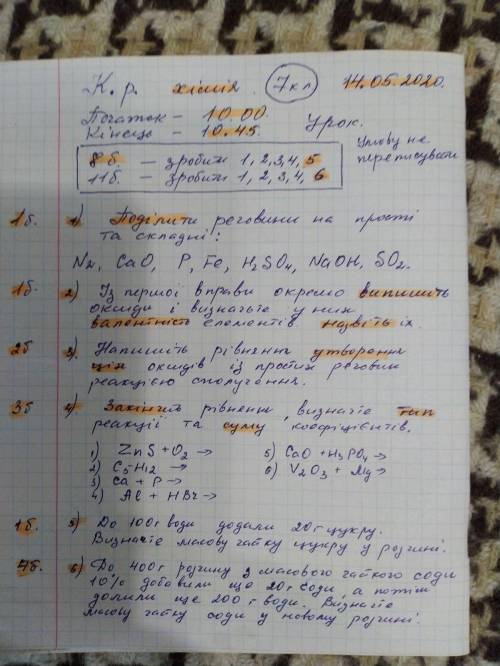 К. р. хімія. 7 кл 14.05.2020.
Початок - 10.00
Кінець - 10.45 Урок.
8б. — зробити 1, 2, 3, 4, 5
11б. — зробити 1, 2, 3, 4, 6
Умову не
переписувати
1б. 1) Поділити речовини на прості
та складні:
N2, CaO, P, Fe, H2SO4, NaOH, SO2.
1б. 2) Із першої вправи окремо випишіть
оксиди і визначте у них
валентність елементів назвіть їх.
2б 3) Напишіть рівняння утворення
цих оксидів із простих речовин
реакцією сполучення.
3б 4) Закінчіть рівняння, визначте тип
реакції та суму коефіцієнтів.
1) ZnS + O2 →
2) C5H12 →
3) Ca + P →
4) Al + HBr →
5) CaO + H3PO4 →
6) V2O3 + Mg →
1б. 5) До 100г води додали 20г цукру.
Визначте масову частку цукру у розчині.
4б. 6) До 400г розчину з масового часткого соди
10% добавили ще 20г соди, а потім
долили ще 200г води. Визначте
масову частку соди у новому розчині.